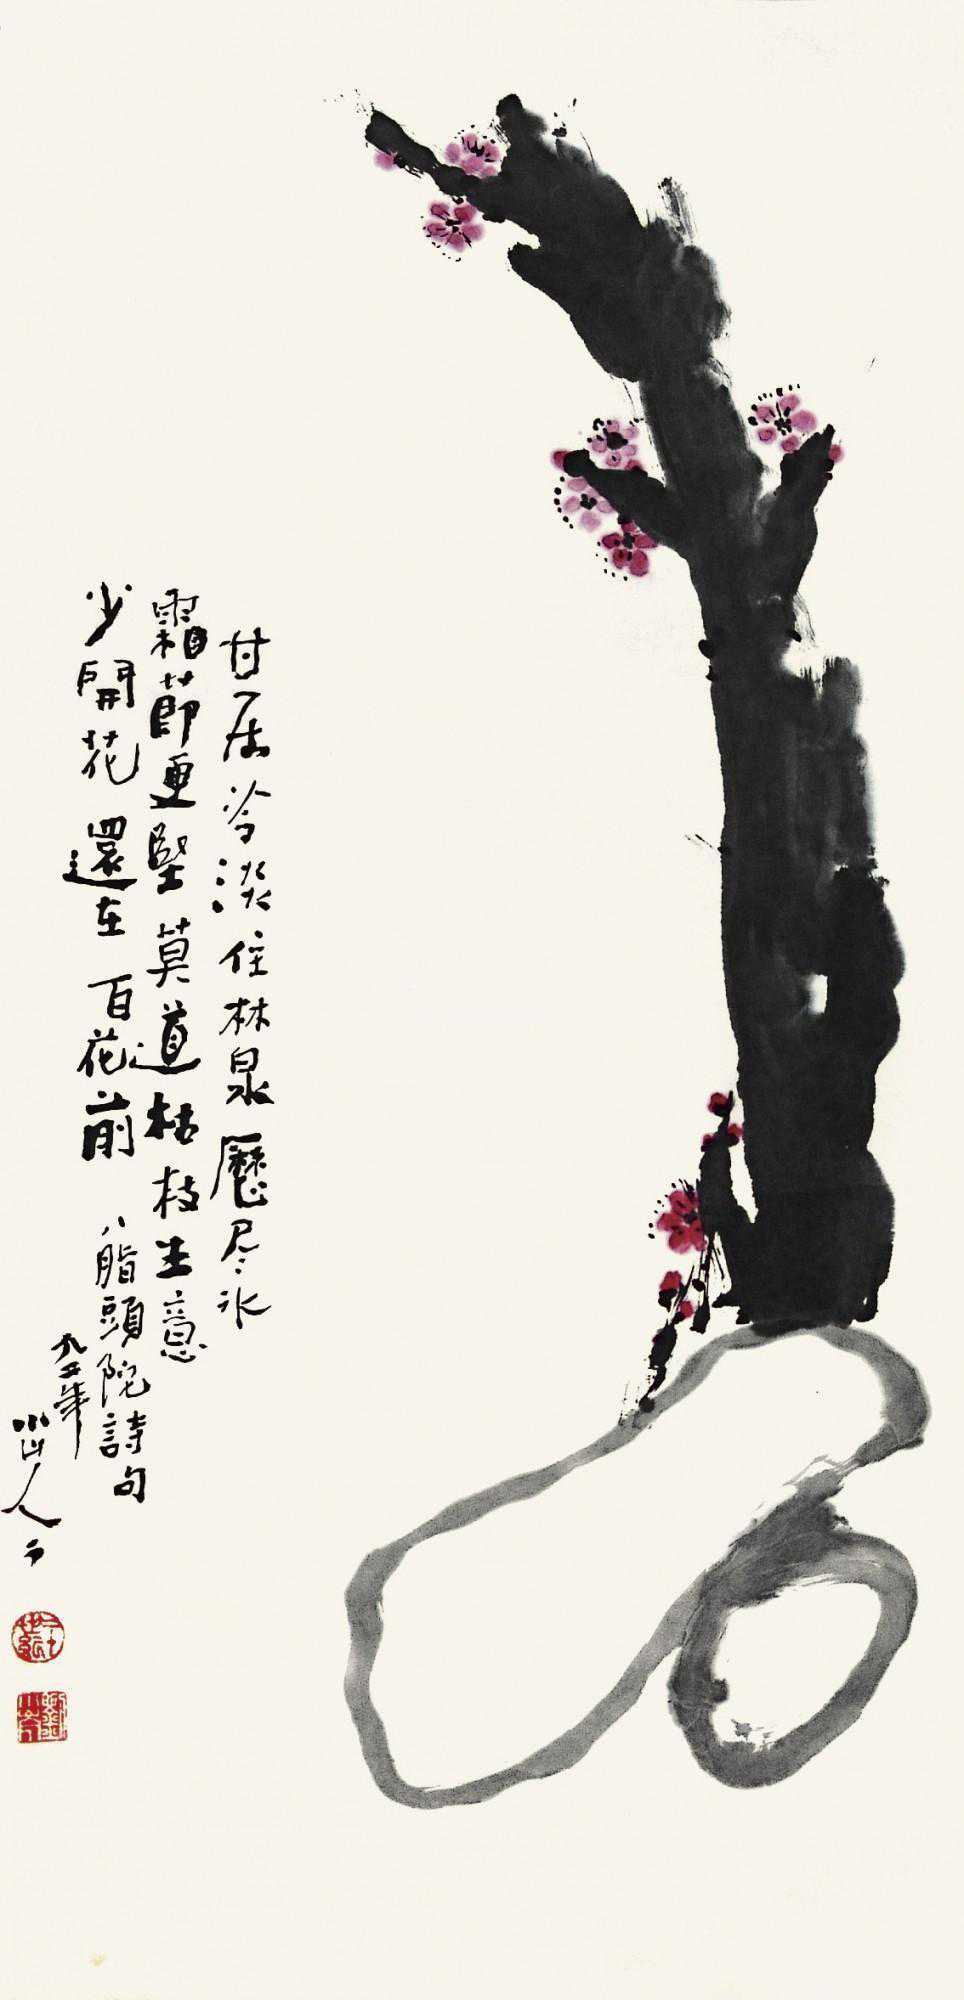 甘居冷淡住林泉歷尽冰
霜節更堅莫道枯枝生意
少開花還在百花前 八脂頭陀詩句
九五年